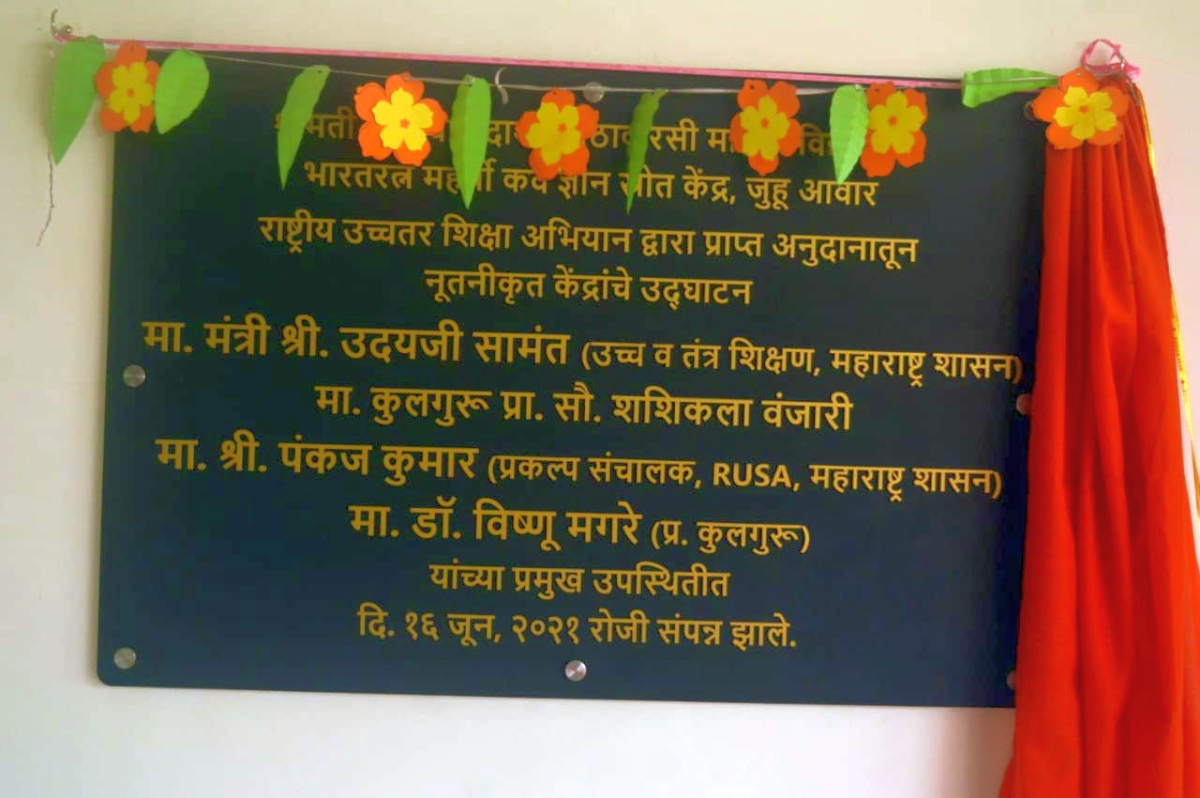 भारतरत्न महर्षी कर्वे ज्ञान स्रोत केंद्र, जुहू आवार
राष्ट्रीय उच्चतर शिक्षा अभियान द्वारा प्राप्त अनुदानातून
नूतनीकृत केंद्रांचे उद्‌घाटन
मा. मंत्री श्री. उदयजी सामंत (उच्च व तंत्र शिक्षण, महाराष्ट्र शासन)
मा. कुलगुरू प्रा. सौ. शशिकला वंजारी
मा. श्री. पंकज कुमार (प्रकल्प संचालक, RUSA, महाराष्ट्र शासन)
मा. डॉ. विष्णू मगरे (प्र. कुलगुरू)
यांच्या प्रमुख उपस्थितीत
दि. १६ जून, २०२१ रोजी संपन्न झाले.